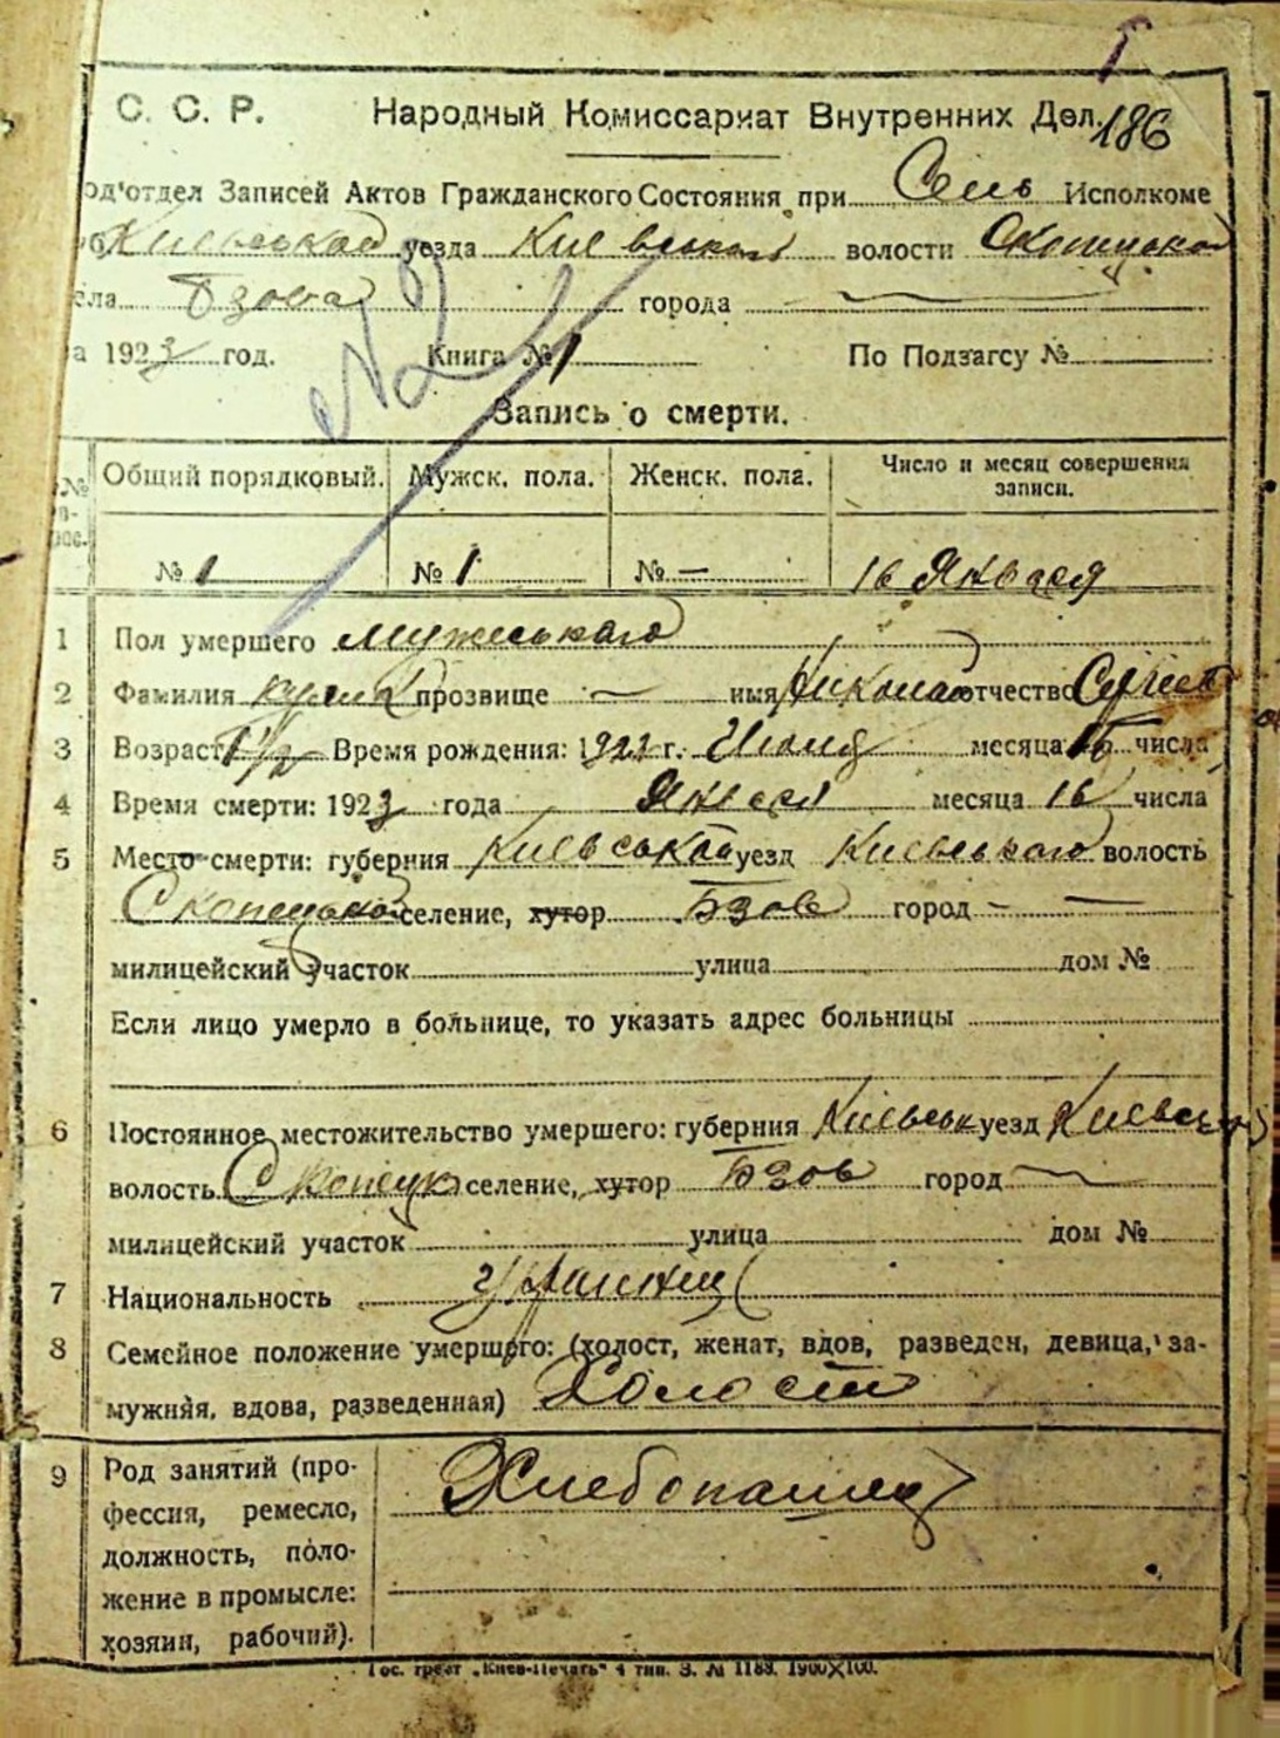 С. С. Р. Народный Комиссариат Внутренних Дел. 186
од'отдел Записей Актов Гражданского Состояния при Сель Исполкоме
уб. Киевськой уезда Киевського волости
ела Бзова города —
а 1923 год. Книга № 1 По Подзагсу №
№2
Запись о смерти.
Общий порядковый. Мужск. пола. Женск. пола. Число и месяц совершения записи.
№ 1 № 1 № — 16 Января
1 Пол умершего Мужеського
2 Фамилия прозвище — имя Николай отчество
3 Возраст 1/2 Время рождения: г. месяца числа
4 Время смерти: 1923 года Января месяца 16 числа
5 Место смерти: губерния Киевськой уезд Киевського волость
селение, хутор Бзов город — —
милицейский участок улица дом №
Если лицо умерло в больнице, то указать адрес больницы
6 Постоянное местожительство умершего: губерния Киевськ уезд Киевськ
волость селение, хутор Бзов город —
милицейский участок улица дом №
7 Национальность
8 Семейное положение умершего: (холост, женат, вдов, разведен, девица, за-
мужняя, вдова, разведенная) Холост
9 Род занятий (про-
фессия, ремесло,
должность, поло-
жение в промысле:
хозяин, рабочий).
Хлебопашец
Гос. трест „Киев-Печать" 4 тип. З. № 1189. 1900X100.